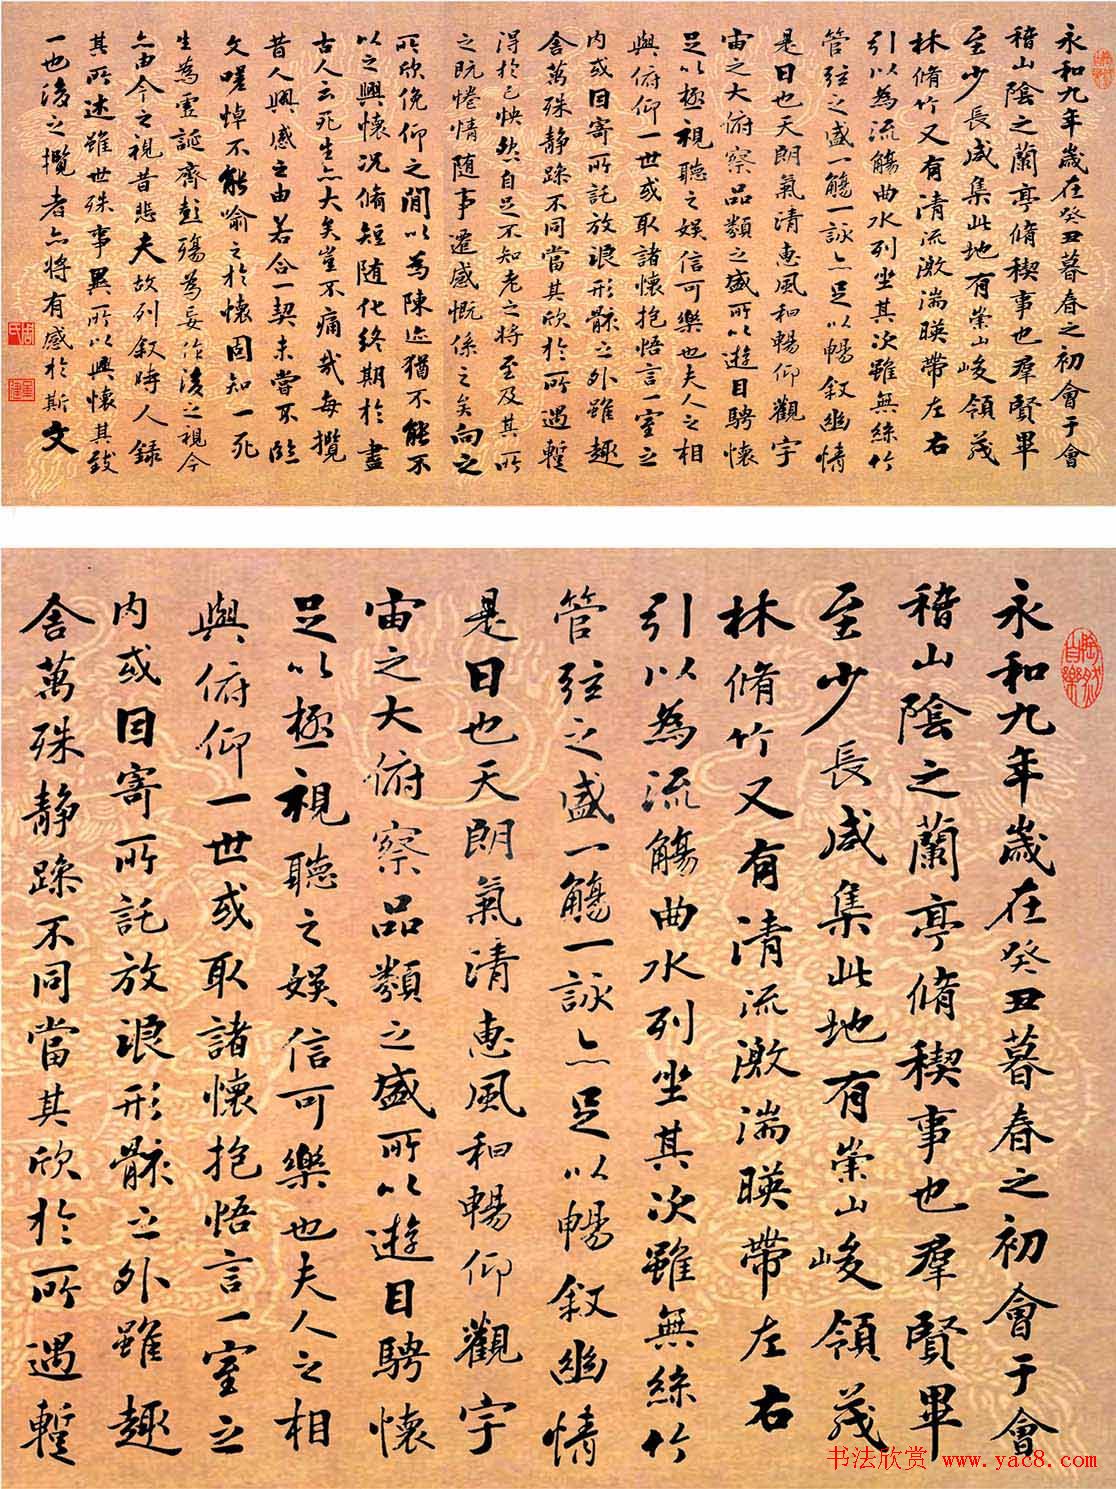 永和九年歲在癸丑暮春之初會于會
稽山陰之蘭亭脩稧事也羣賢畢
至少長咸集此地有崇山峻領茂
林脩竹又有清流激湍暎帶左右
引以為流觴曲水列坐其次雖無絲竹
管弦之盛一觴一詠亦足以暢敘幽情
是日也天朗氣清惠風和暢仰觀宇
宙之大俯察品類之盛所以遊目騁懷
足以極視聽之娛信可樂也夫人之相
與俯仰一世或取諸懷抱悟言一室之
內或因寄所託放浪形骸之外雖趣
舍萬殊靜躁不同當其欣於所遇蹔
得於己怏然自足不知老之將至及其所
之既惓情隨事遷感慨係之矣向之
所欣俛仰之間以為陳迹猶不能不
以之興懷況脩短隨化終期於盡
古人云死生亦大矣豈不痛哉每攬
昔人興感之由若合一契未嘗不臨
文嗟悼不能喻之於懷固知一死
生為虛誕齊彭殤為妄作後之視今
亦由今之視昔悲夫故列敘時人錄
其所述雖世殊事異所以興懷其致
一也後之攬者亦將有感於斯文
陶然自樂
永和九年歲在癸丑暮春之初會于會
稽山陰之蘭亭脩稧事也羣賢畢
至少長咸集此地有崇山峻領茂
林脩竹又有清流激湍暎帶左右
引以為流觴曲水列坐其次雖無絲竹
管弦之盛一觴一詠亦足以暢敘幽情
是日也天朗氣清惠風和暢仰觀宇
宙之大俯察品類之盛所以遊目騁懷
足以極視聽之娛信可樂也夫人之相
與俯仰一世或取諸懷抱悟言一室之
內或因寄所託放浪形骸之外雖趣
舍萬殊靜躁不同當其欣於所遇蹔
书法欣赏 www.yac8.com